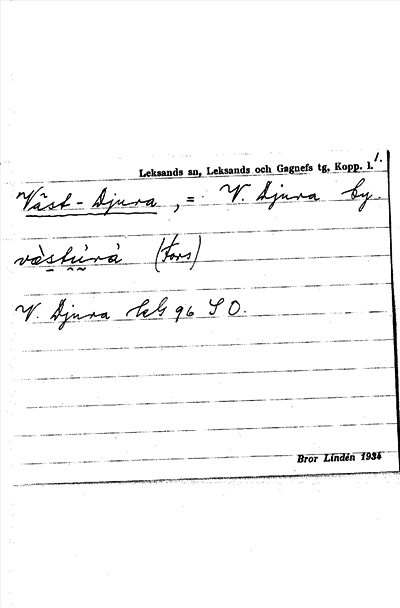 Leksands sn, Leksands och Gagnefs tg, Kopp. l. 1.
Väst-Djura, = V. Djura by.
västúrà (Fors)
V. Djura bl. 96 SO.
Bror Lindén 1934